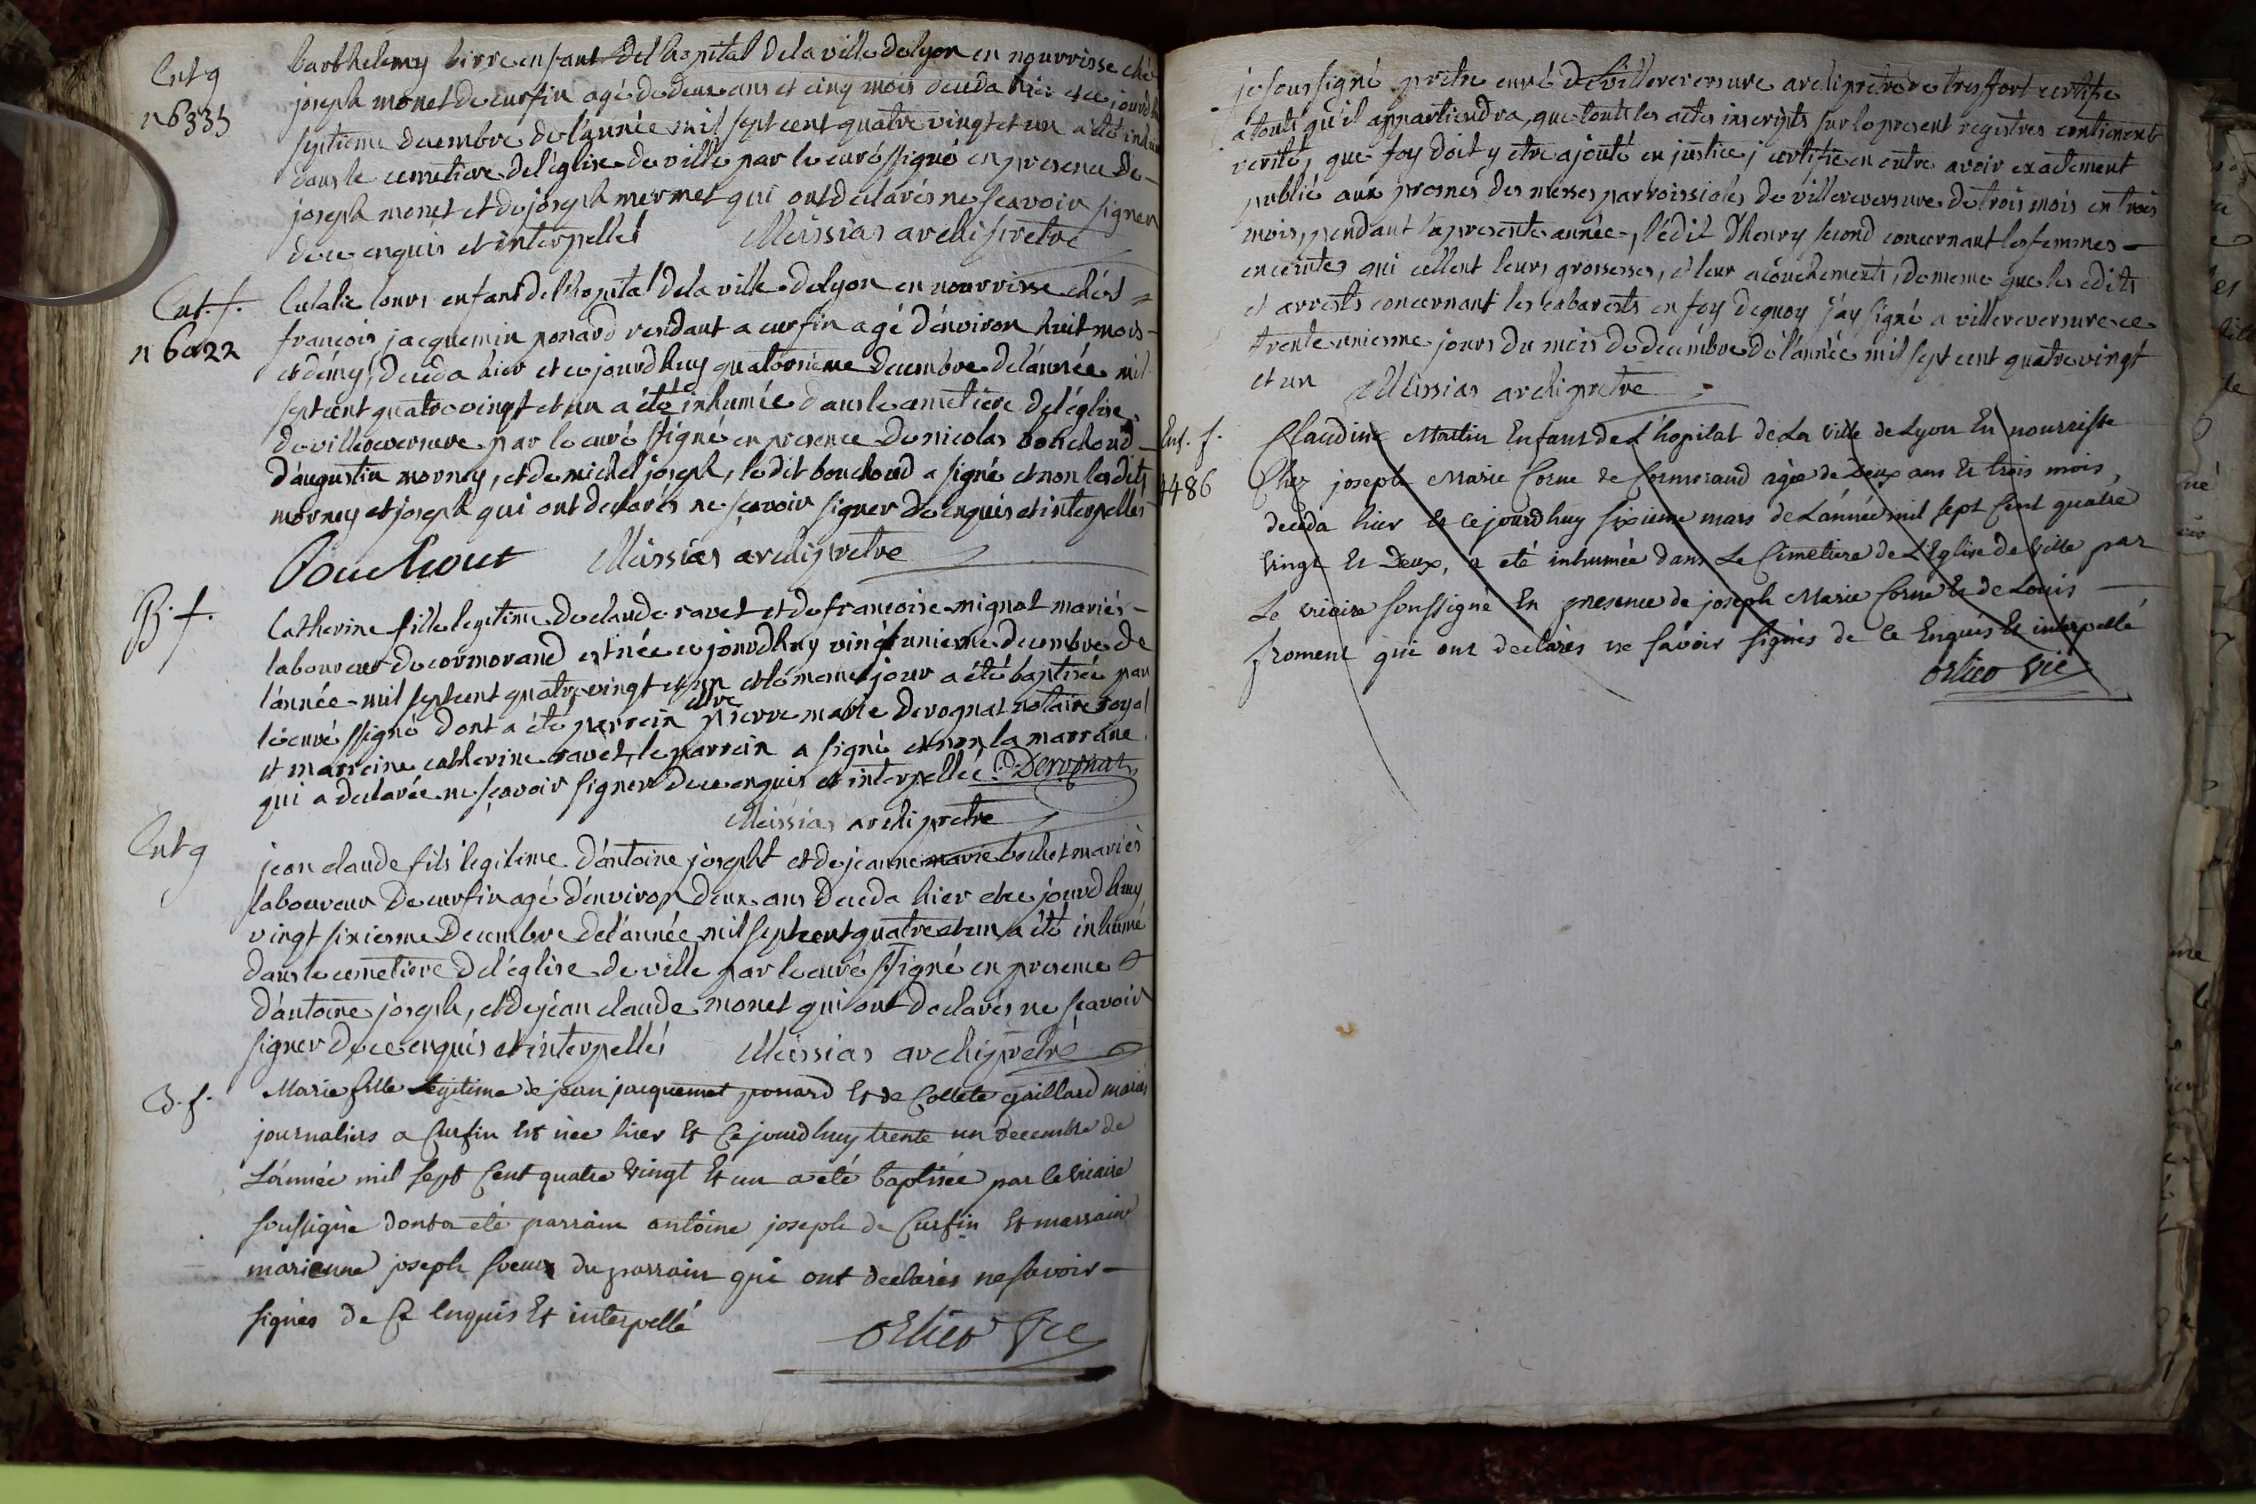 Ent g
n 6335
barthelemy birre enfant del hopital dela ville delyon en nourrisse ché
joseph monet de curfin agé dedeux ans et cinq mois deceda hier et ce jourdhuy
septieme decembre de l'année mil sept cent quatre vingt et un a été
dans le cemetiere del'église de ville par le curé ssigné en presence de
joseph monet et de joseph mermet qui ont declarés ne scavoir signer
dece enquis et interpellés Messias archipretre
Ent. f.
n 6022
Eulalie enfant del hopital dela ville delyon en nourrisse chés
francois jacquemin ponard a curfin agé d'environ huit mois
et demy, deceda hier et ce jourdhuy quatorsieme decembre del'année mil
sept cent quatre vingt et un a été inhumée dans le cemetiere del'église
de villereversure par le curé ssigné en presence de nicolas bouchoud
d'augustin morney, et de michel joseph, ledit bouchoud a signé et non lesdits
morney et joseph qui ont declarés ne scavoir signer de enquis et interpellés
Bouchout Messias archipretre
B. f.
Catherine fille legitime de claude ravet et de francoise mignat mariés
laboureur de cormorand est née ce jourdhuy vingt unieme decembre de
l'année mil sept cent quatre vingt et un et le meme jour a été baptisée par
le curé ssigné dont a été parrein pierre marie derognat notaire royal
et marreine catherine ravet, le parrein a signé et non la marreine
qui a declarée ne scavoir signer dece enquis et interpellée Derognat
Messias archipretre
Ent g
jean claude fils legitime d'antoine joseph et de jeanne marie bochet mariés
laboureur de curfin agé d'environ deux ans deceda hier et ce jourdhuy
vingt sixiesme decembre del'année mil sept cent quatre et un a été inhumé
dans le cemetiere del'église de ville par le curé ssigné en presence
d'antoine joseph, et de jean claude monet qui ont declarés ne scavoir
signer dece enquis et interpellés Messias archipretre
B. f.
Marie fille Legitime de jean jacquemet ponard Et de Collete gaillard mariés
journaliers a Curfin Est née hier Et Ce jourdhuy trente un decembre de
L'année mil sept Cent quatre Vingt Et un a eté baptisée par le Vicaire
soussigné dont a eté parrain antoine joseph de Curfin Et marraine
marienne joseph soeur du parrain qui ont declarés ne savoir
signés de Ce Enquis Et interpellé
vic
je soussigné pretre curé de villereversure archipretre de tresffort certifie
a touts qu'il appartiendra, que touts les actes inscripts sur le present registres contiennent
verité, que foy doit y etre ajouté en justice ; certifie en outre avoir exactement
publié aux prosnes des messes parroissiales de villereversure de trois mois en trois
mois, pendant la presente année, l'édit d'henry second concernant les femmes
enceintes qui cellent leurs grossesses, et leur acouchements, de meme que les edits
et arrests concernant les cabarests en foy dequoy j'ay signé a villereversure ce
trente unieme jours du mois de decembre de l'année mil sept cent quatre vingt
et un Messias archipretre
Ent. f.
4486
Claudine Martin Enfant de L'hopital de La Ville de Lyon En nourrisse
Chez joseph Marie Corne de Cormorand agée de Deux ans Et trois mois,
deceda hier Et Ce jourd huy sixieme mars de L'année mil sept Cent quatre
Vingt Et Deux, a eté inhumée dans Le Cimetiere de L'Eglise de Ville par
Le Vicaire soussigné En presence de joseph Marie Corne Et de Louis
froment qui ont declarés ne savoir signés de Ce Enquis Et interpellé
vic